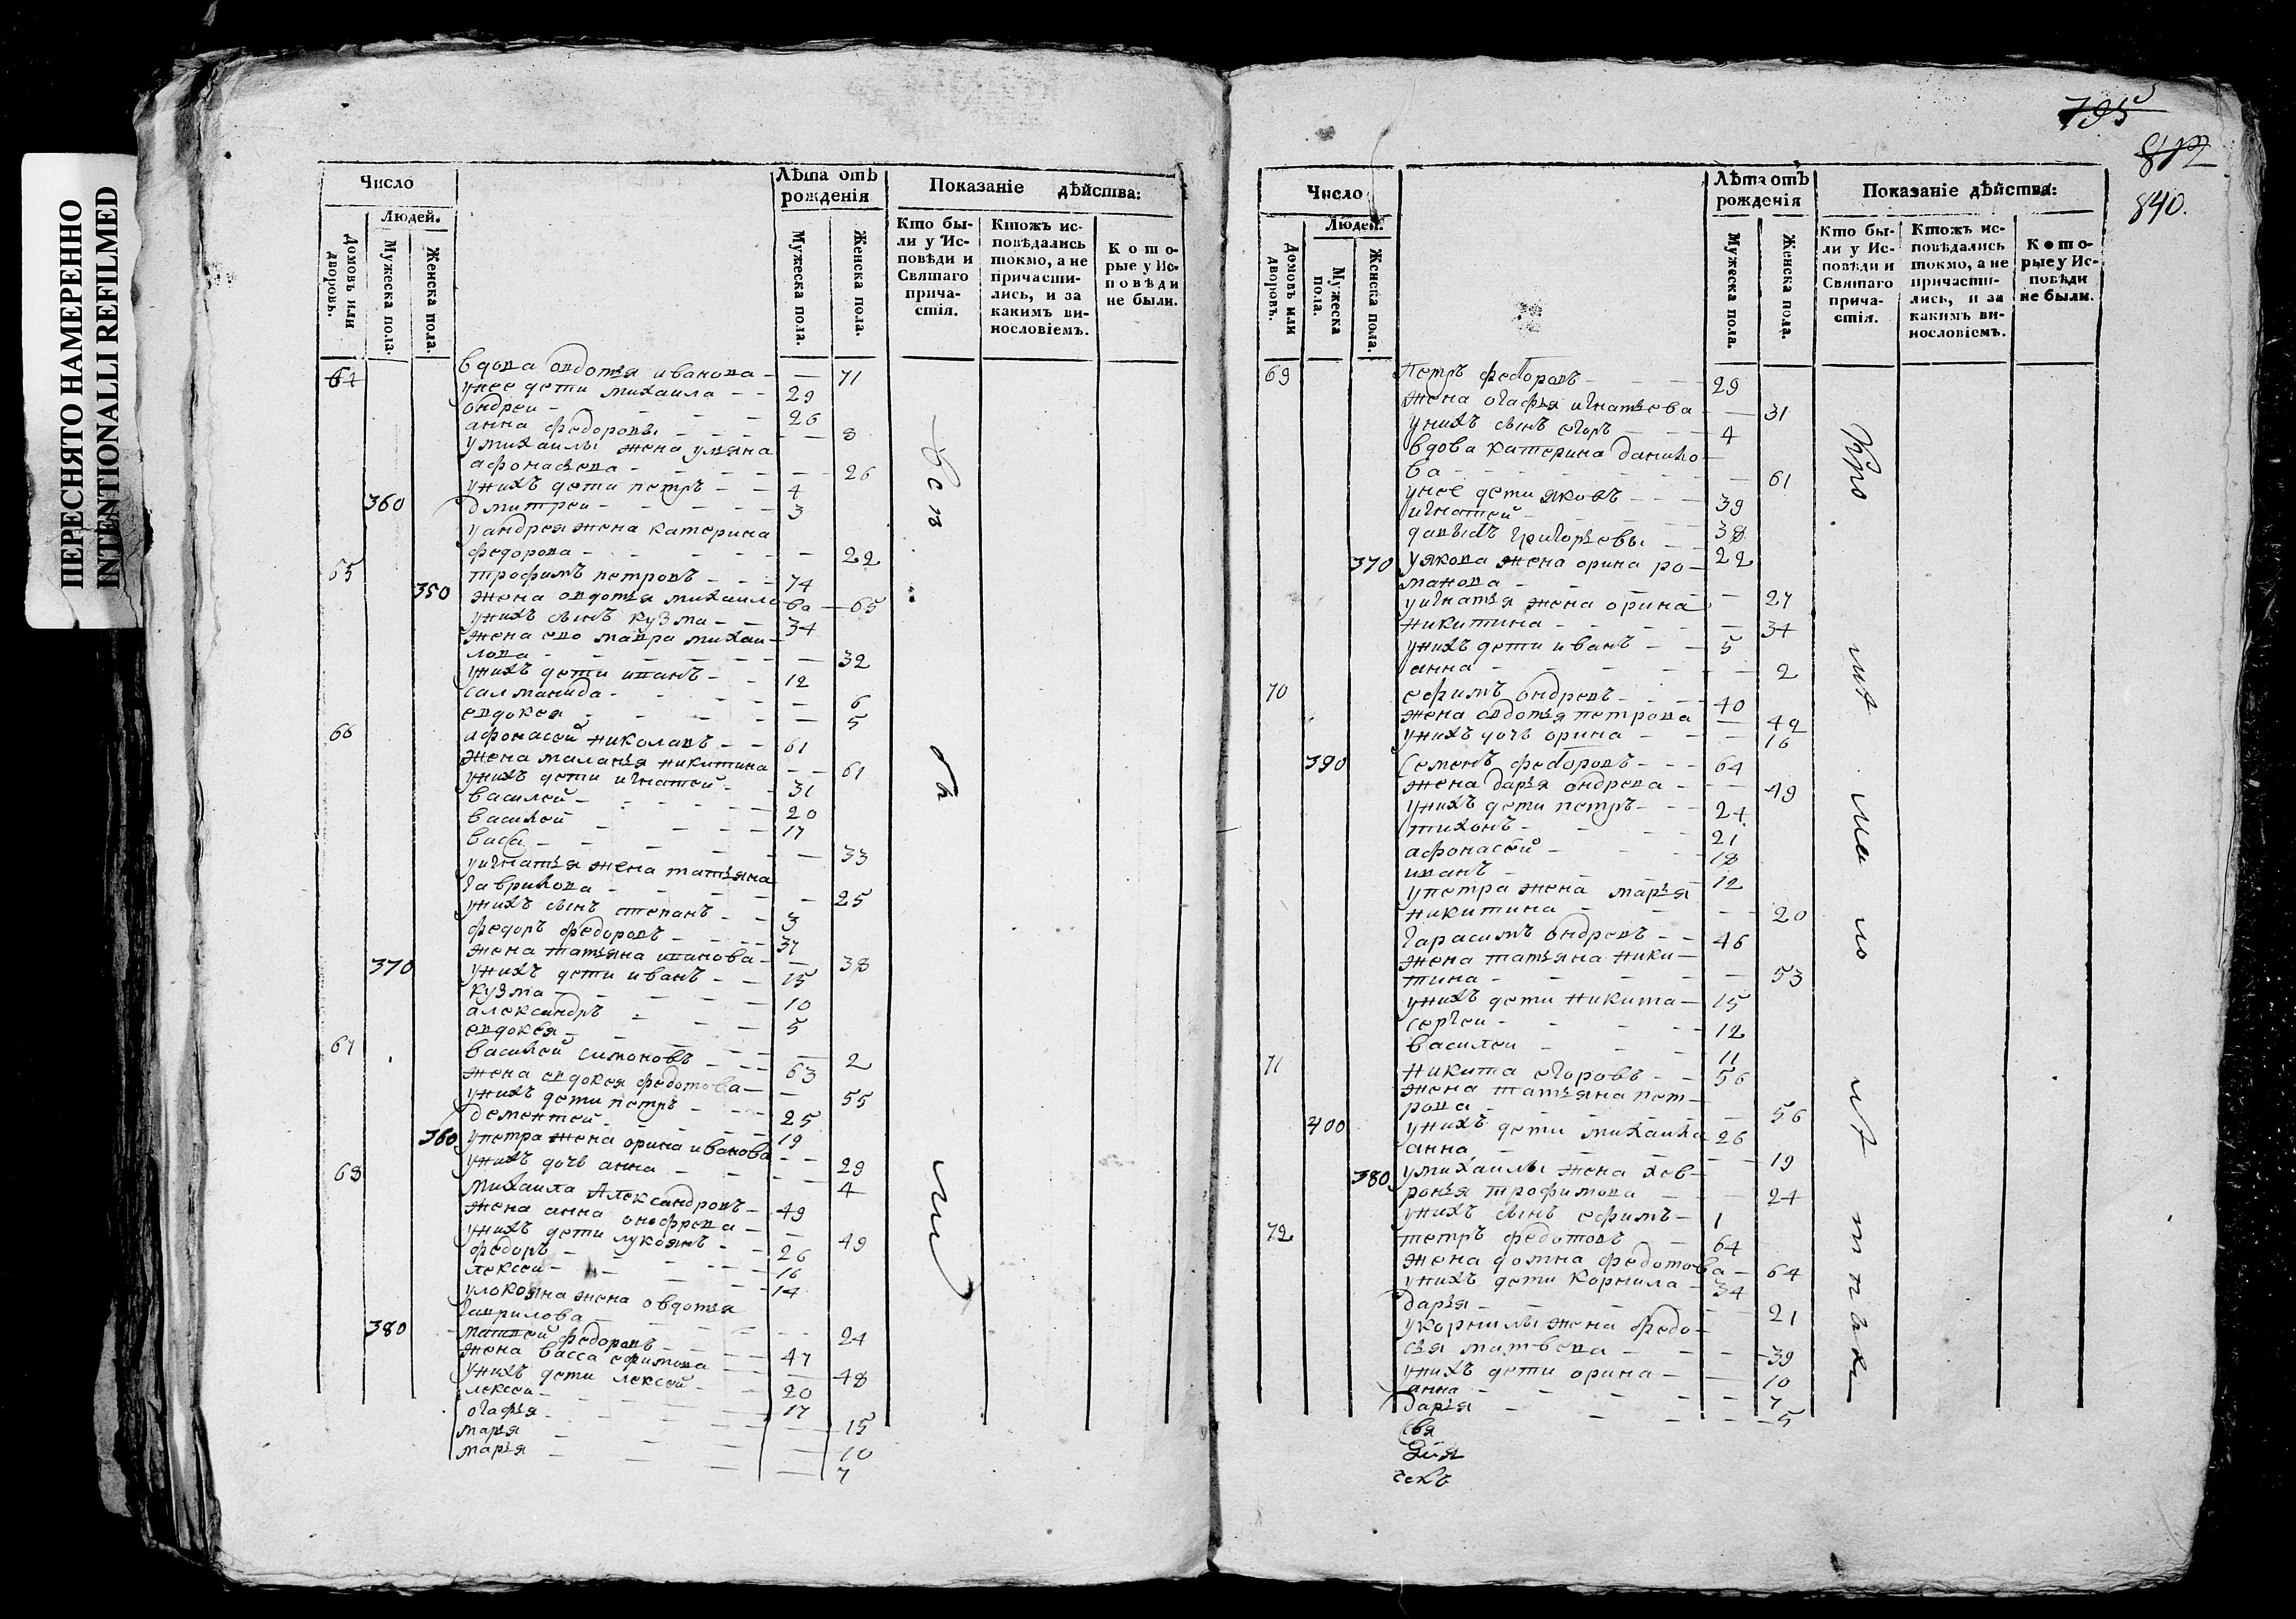 ПЕРЕСНЯТО НАМЕРЕННО
INTENTIONALLI REFILMED
Число
Лѣта отъ рожденія
Показаніе дѣйства:
Людей.
Домовъ или дворовъ.
Мужеска пола.
Женска пола.
Мужеска пола.
Женска пола.
Кто бы-
ли у Ис-
повѣди и
Святаго
прича-
стія.
Ктожъ ис-
повѣдались
токмо, а не
причасти-
лись, и за
какимъ ви-
нословіемъ.
Кото-
рые у Ис-
повѣди
не были.
64 вдова овдотья иванова 71
унее дети михаила 29
ондреи 26
анна федоровы 8
умихаилы жена ульяна
афонасьева 26
унихъ дети петръ 4
360 дмитреи 3
уандрея жена катерина
федорова 22
65 трофимъ петровъ 74
350 жена овдотья михаилова 65
унихъ сынъ кузма 34
жена ево мавра михаи-
лова 32
унихъ дети иванъ 12
салманида 6
евдокея 5
66 афонасей николавъ 61
жена маланья никитина 61
унихъ дети игнатей 31
василей 20
василей 17
васа 33
уигнатья жена татьяна
гаврилова 25
унихъ сынъ степанъ 3
федоръ федоровъ 37
жена татьяна иванова 38
370 унихъ дети иванъ 15
кузма 10
александръ 5
евдокея 2
67 василей симоновъ 63
жена евдокея федотова 55
унихъ дети петръ 25
дементей 19
360 упетра жена орина иванова 29
унихъ дочь анна 4
68 михаила александровъ 49
жена анна онофрева 49
унихъ дети лукоянъ 26
федоръ 16
лексеи 14
улокояна жена овдотья
гаврилова 24
380 матвей федоровъ 47
жена васса ефимова 48
унихъ дети лексей 20
лексеи 17
огафья 15
марья 10
марья 7
795
812
840.
Число
Лѣта отъ рожденія
Показаніе дѣйства:
Людей.
Домовъ или дворовъ.
Мужеска пола.
Женска пола.
Мужеска пола.
Женска пола.
Кто бы-
ли у Ис-
повѣди и
Святаго
прича-
стія.
Ктожъ ис-
повѣдались
токмо, а не
причасти-
лись, и за
какимъ ви-
нословіемъ.
Кото-
рые у Ис-
повѣди
не были.
69 Петръ федоровъ 29
жена огафья игнатьева 31
унихъ сынъ егоръ 4
вдова катерина данило-
ва 61
унее дети яковъ 39
игнатей 38
давыдъ григорьевы 22
370 уякова жена орина ро-
манова 27
уигнатья жена орина
никитина 34
унихъ дети иванъ 5
анна 2
70 ефимъ ондревъ 40
жена овдотья петрова 42
унихъ дочь орина 16
390 семенъ федоровъ 64
жена дарья ондрева 49
унихъ дети петръ 24
тихонъ 21
афонасей 18
иванъ 12
упетра жена марья
никитина 20
гарасимъ ондревъ 46
жена татьяна ники-
тина 53
унихъ дети никита 15
сергеи 12
василеи 11
71 никита егоровъ 56
жена татьяна пет-
рова 56
400 унихъ дети михаила 26
анна 19
380 умихаилы жена хев-
ронья трофимова 24
унихъ сынъ ефимъ 1
72 петръ федотовъ 64
жена домна федотова 64
унихъ дети корнила 34
дарья 21
укорнилы жена федо-
сья матвева 39
унихъ дети орина 10
анна 7
дарья 5